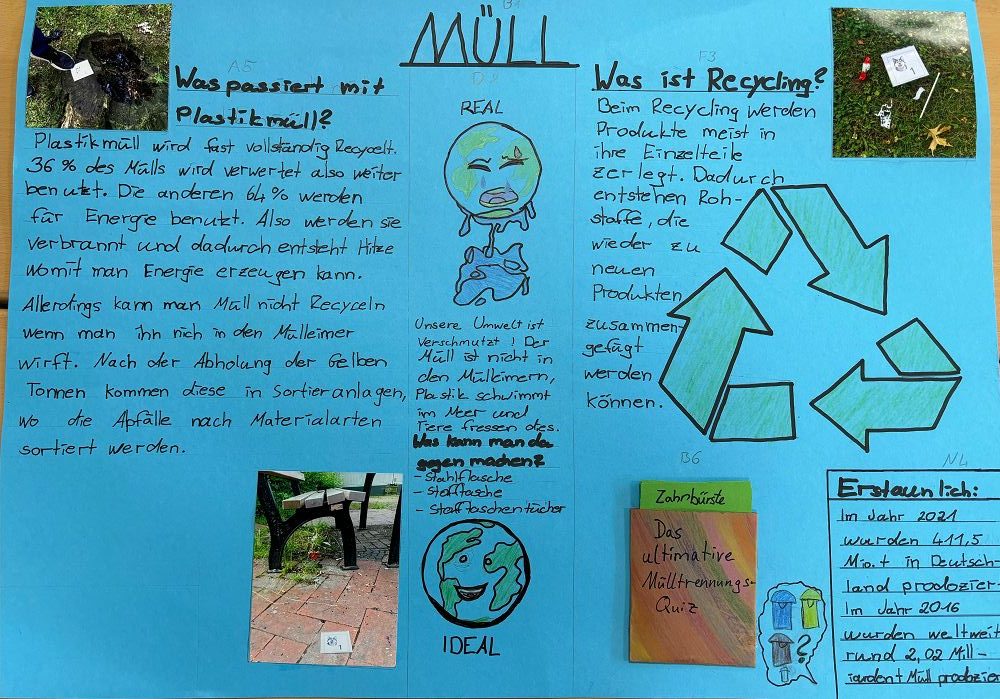 MÜLL
B1
A5
Was passiert mit
Plastikmüll?
Plastikmüll wird fast vollständig Recycelt.
36 % des Mülls wird verwertet also weiter
benutzt. Die anderen 64 % werden
für Energie benutzt. Also werden sie
verbrannt und dadurch entsteht Hitze
womit man Energie erzeugen kann.
Allerdings kann man Müll nicht Recyceln
wenn man ihn nich in den Mülleimer
wirft. Nach der Abholung der Gelben
Tonnen kommen diese in Sortieranlagen,
wo die Apfälle nach Materialarten
sortiert werden.
D2
REAL
Unsere Umwelt ist
verschmutzt! Der
Müll ist nicht in
den Mülleimern,
Plastik schwimmt
im Meer und
Tiere fressen dies.
Was kann man da
gegen machen?
- Stahlflasche
- Stofftasche
- Stofftaschentücher
IDEAL
F3
Was ist Recycling?
Beim Recycling werden
Produkte meist in
ihre Einzelteile
zerlegt. Dadurch
entstehen Roh-
stoffe, die
wieder zu
neuen
Produkten
zusammen-
gefügt
werden
können.
B6
Zahnbürste
Das
ultimative
Mülltrennungs-
Quiz
?
N4
Erstaunlich:
Im Jahr 2021
wurden 411,5
Mio.t in Deutsch-
land prodozier
Im Jahr 2016
wurden weltweit
rund 2,02 Mill-
iarden t Müll prodozie